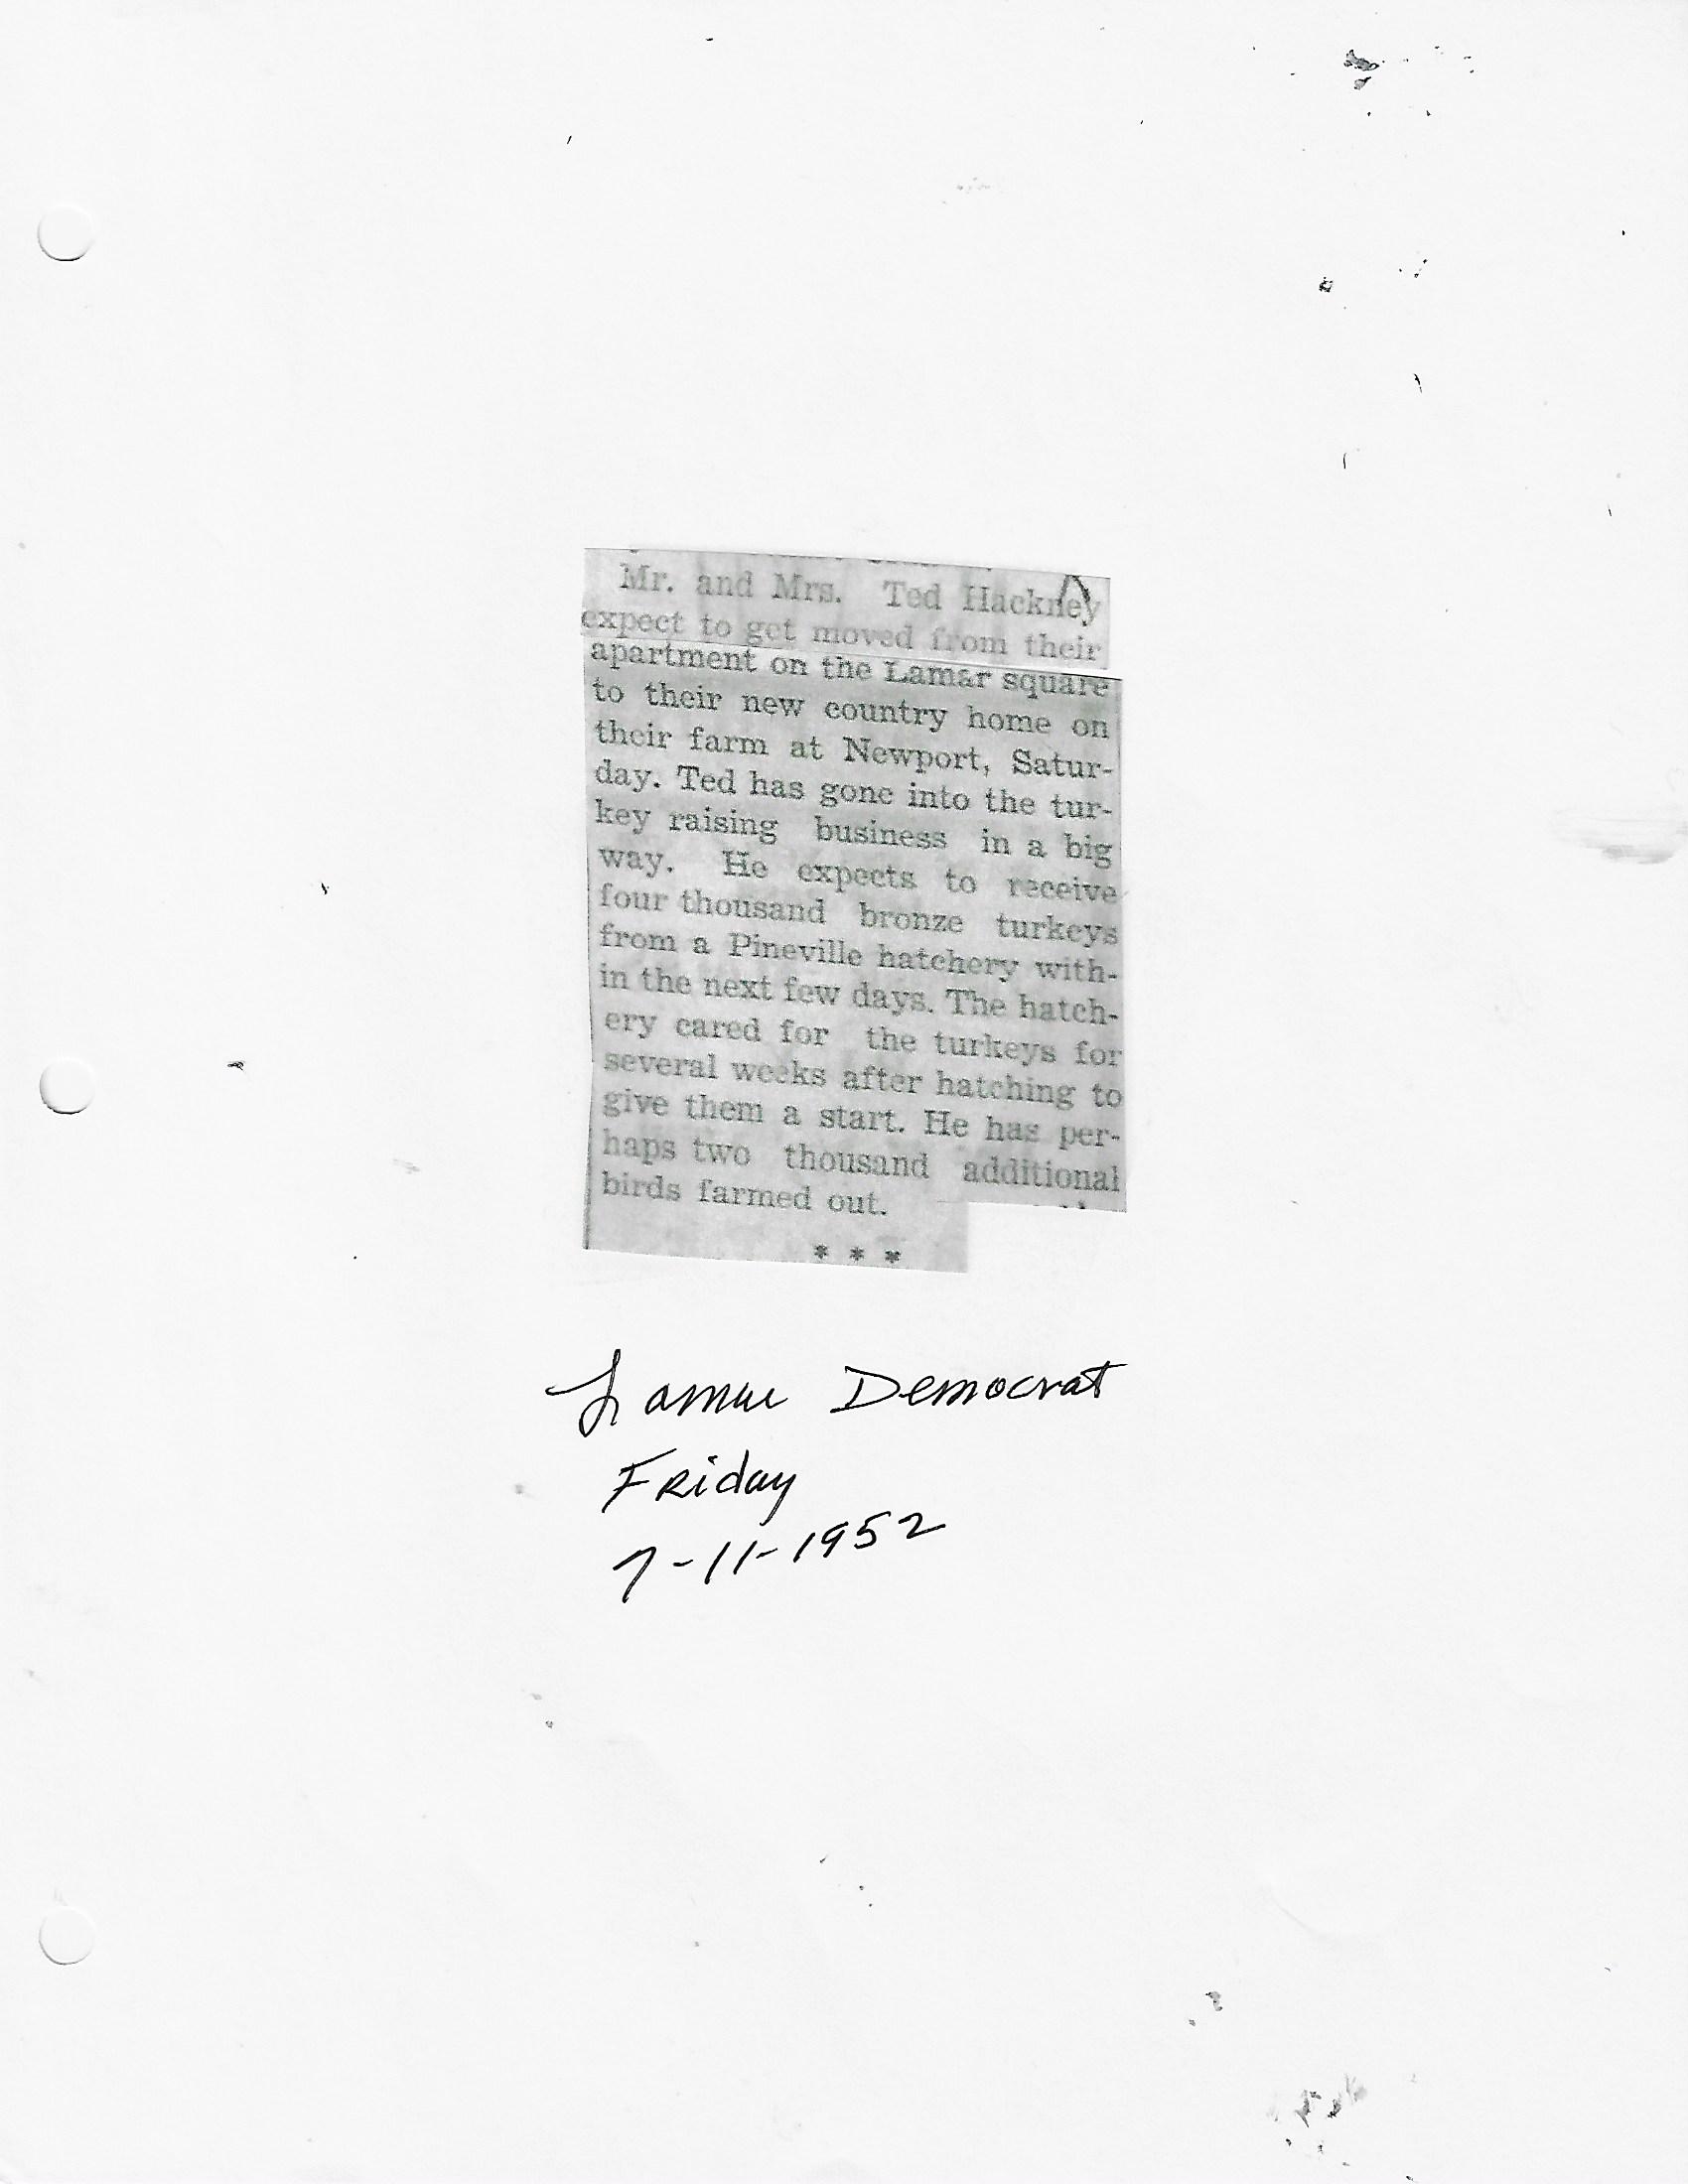 Mr. and Mrs. Ted Hackney
expect to get moved from their
apartment on the Lamar square
to their new country home on
their farm at Newport, Satur-
day. Ted has gone into the tur-
key raising business in a big
way. He expects to receive
four thousand bronze turkeys
from a Pineville hatchery with-
in the next few days. The hatch-
ery cared for the turkeys for
several weeks after hatching to
give them a start. He has per-
haps two thousand additional
birds farmed out.
* * *
Lamar Democrat
Friday
7-11-1952